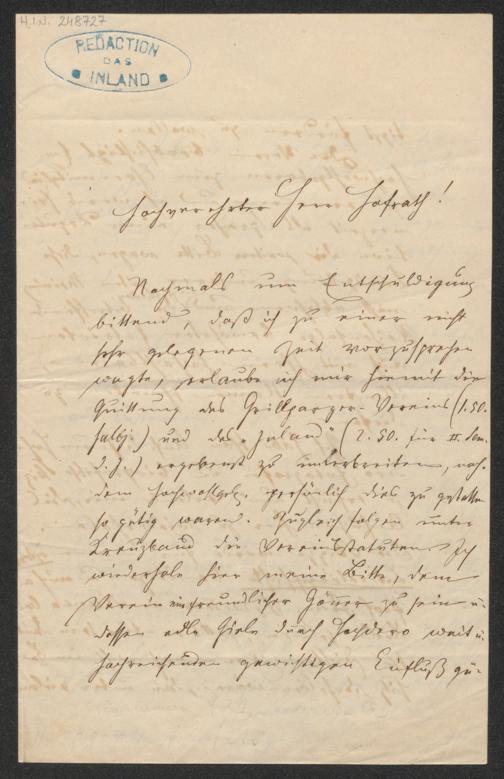 H.I.N. 248727
REDACTION
DAS
INLAND
Hochverehrter Herr Hofrath!
Nochmals um Entschuldigung
bittend, daß ich zu einer nicht
sehr gelegenen Zeit vorzusprechen
wagte, erlaube ich mir hiemit die
Quittung des Grillparzer-Vereins (1.50.
halbj.) und des „Inland" (2.50. für II. Sem.
d. J.) ergebenst zu unterbreiten, nach-
dem Hochwollgeb. persönlich dies zu gestatten
so gütig waren. Zugleich folgen unter
Kreuzband die Vereinsstatuten. Ich
wiederhole hier meine Bitte, dem
Verein ein freundlicher Gönner zu sein u.
dessen edle Ziele durch Hochdero weit u.
hochreichenden gewichtigen Einfluß gü-